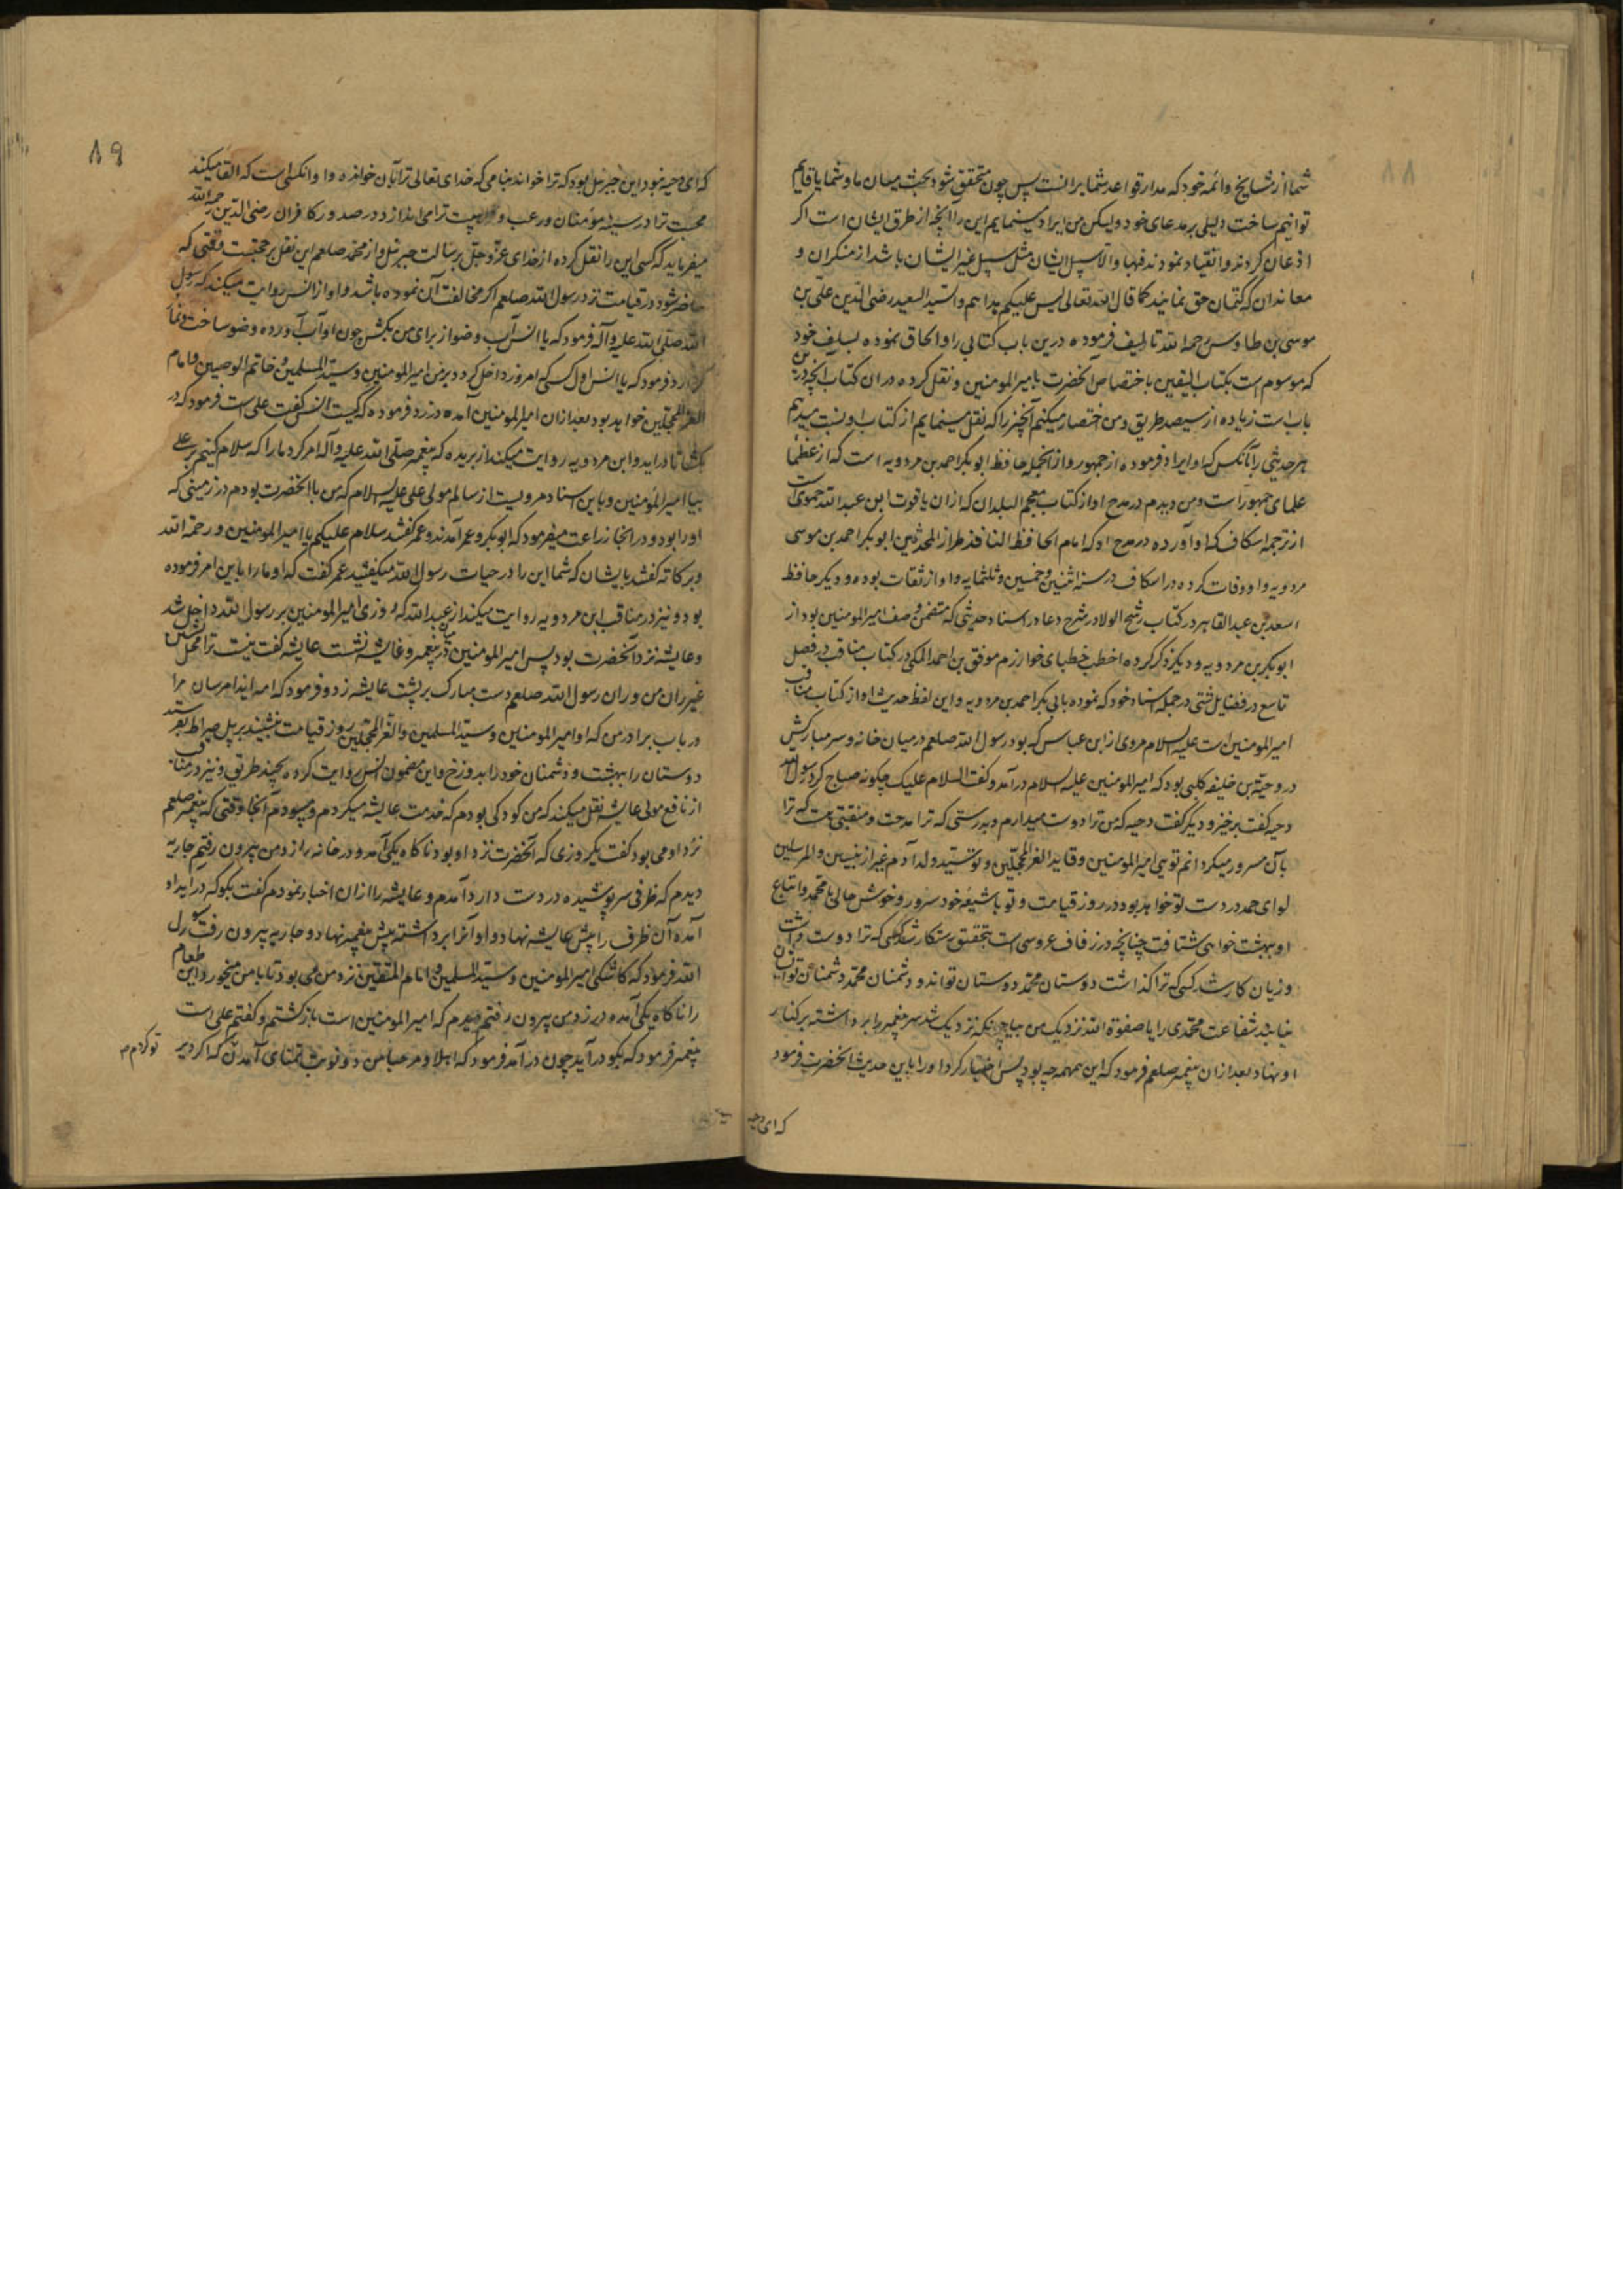 ۸۸
شما از مشایخ و ائمه خود که مدار قواعد شما برانست پس چون متحقق شود بحث میان ما و شما یا قایم
توانیم ساخت دلیلی بر مدعای خود ولیکن من ایراد مینمایم این را آنچه از طرق ایشان است اگر
اذعان کردند و انقیاد نمودند فبها و الا سبیل ایشان مثل سبیل غیر ایشان باشد از منکران و
معاندان که کتمان حق نمایند کما قال الله تعالی لیس علیکم هداهم والسید السعید رضی الدین علی بن
موسی بن طاوس رحمه الله تالیف فرموده درین باب کتابی را و الحاق نموده بسابق خود
که موسوم است بکتاب الیقین باختصاص آنحضرت بامیر المومنین و نقل کرده در ان کتاب آنچه درین
باب است زیاده از سیصد طریق و من اختصار میکنم آنچیز را که نقل مینمایم از کتاب او نسبت میدهم
هر حدیثی را بآنکس که او ایراد فرموده از جمهور و از انجمله حافظ ابو بکر احمد بن مردویه است که از عظمای
علمای جمهور است و من دیدم در مدح او از کتاب معجم البلدان که از ان یاقوت ابن عبد الله حموی است
از ترجمه اسکاف که او آورده در مدح او که امام الحافظ الناقد طراز المحدثین ابو بکر احمد بن موسی
مردویه و او وفات کرده در اسکاف در سنه اثنین و خمسین و ثلثمایه و او از ثقات بوده و دیگر حافظ
اسعد بن عبد القاهر در کتاب رشح الولا در شرح دعا در اسناد حدیثی که متضمن وصف امیر المومنین بود از
ابو بکر بن مردویه و دیگر ذکر کرده اخطب خطبای خوارزم موفق بن احمد المکی در کتاب مناقب در فصل
تاسع در فضایل شتی در جمله اسناد خود که نموده بابی بکر احمد بن مردویه و این لفظ حدیث او از کتاب مناقب
امیر المومنین است علیه السلام مروی از ابن عباس که بود رسول الله صلعم در میان خانه و سر مبارکش
در دحیة بن خلیفه کلبی بود که امیر المومنین علیه السلام در آمد و گفت السلام علیک چگونه صباح کرد رسول الله
دحیه گفت بر خیر و دیگر گفت دحیه که من ترا دوست میدارم و بدرستی که ترا مدحت و منقبتی هست که ترا
بآن مسرور میگردانم تویی امیر المومنین و قاید الغر المحجلین و تو سید ولد آدم غیر از نبیین و المرسلین
لوای حمد در دست تو خواهد بود در روز قیامت و تو با شیعه خود سرور و خوش حالی با محمد و اتباع
او بهشت خواهی شتافت چنانچه در زفاف عروسی است بتحقیق رستکار شد کسی که ترا دوست داشت
و زیان کار شد کسی که ترا گذاشت دوستان محمد دوستان تواند و دشمنان محمد دشمنان توانند
نیابند شفاعت محمدی را یا صفوة الله نزدیک من بیا چونکه نزدیک شد سر پیغمبر را برداشته بر کنار
او نهاد بعد از ان پیغمبر صلعم فرمود که این همهمه چه بود پس اخبار کرد او را باین حدیث آنحضرت فرمود
که ای دحیه
۸۹
که ای دحیه نبود این جبرئیل بود که ترا خواند بنامی که خدای تعالی ترا بآن خوانده و او انکس است که القا میکند
محبت ترا در سینه مؤمنان و رعب و هیبت ترا می اندازد در صدور کافران رضی الدین رحمه الله
میفرماید که کسی این را نقل کرده از خدای عز و جل برسالت جبرئیل و از محمد صلعم این نقل بر حجتیست وقتی که
حاضر شود در قیامت نزد رسول الله صلعم اگر مخالفت آن نموده باشد و او از انس روایت میکند که رسول
الله صلی الله علیه و آله فرمود که یا انس آب وضو از برای من بکش چون او آب آورده وضو ساخت و نماز
کرد فرمود که یا انس اول کسی که امروز داخل گردد بر من امیر المومنین و سید المسلمین و خاتم الوصیین و امام
الغر المحجلین خواهد بود بعد ازان امیر المومنین آمده در زد فرموده که کیست انس گفت علی است فرمود که در
بکشا تا دراید و ابن مردویه روایت میکند از بریده که پیغمبر صلی الله علیه و آله امر کرد ما را که سلام کنیم بر علی
بیا امیر المؤمنین و باین اسناد مرویست از سالم مولی علی علیه السلام که من با آنحضرت بودم در زمینی که
او را بود و در انجا زراعت میفرمود که ابو بکر و عمر آمدند و گفتند سلام علیکم یا امیر المومنین و رحمة الله
و برکاته گفتند بایشان که شما این را در حیات رسول الله میگفتید عمر گفت که او ما را باین امر فرموده
بود و نیز در مناقب ابن مردویه روایت میکند از عبد الله که روزی امیر المومنین بر رسول الله داخل شد
و عایشه نزد آنحضرت بود پس امیر المومنین میان پیغمبر و عایشه نشست عایشه گفت نیست ترا محل
غیر ران من و ران رسول الله صلعم دست مبارک بر پشت عایشه زد و فرمود که امه ایذا مرسان مرا
در باب برادر من که او امیر المومنین و سید المسلمین و الغر المحجلین روز قیامت بنشیند بر پل صراط بفرستد
دوستان را ببهشت و دشمنان خود را بدوزخ و این مضمون انس روایت کرده بچند طریق و نیز در مناقب
از نافع مولی عایشه نقل میکند که من کودکی بودم که خدمت عایشه میکردم و میبودم آنجا وقتی که پیغمبر صلعم
نزد او می بود گفت یک روزی که آنحضرت نزد او بود ناگاه یکی آمد و در خانه را زد من بیرون رفتم جاریه
دیدم که ظرفی سر پوشیده در دست دارد آمدم و عایشه را ازان اخبار نمودم گفت بگو که دراید او
آمده آن ظرف را پیش عایشه نهاد و او آنرا برداشته پیش پیغمبر نهاد و جاریه بیرون رفت رسول
الله فرمود که کاشکی امیر المومنین و سید المسلمین و امام المتقین نزد من می بود تا با من میخورد این طعام
را ناگاه یکی آمده در زد من بیرون رفتم دیدم که امیر المومنین است بازگشتم و گفتم علی است
پیغمبر فرمود که بگو دراید چون در آمد فرمود که اهلا و مرحبا من دو نوبت تمنای آمدن تو کردم که اگر دیر